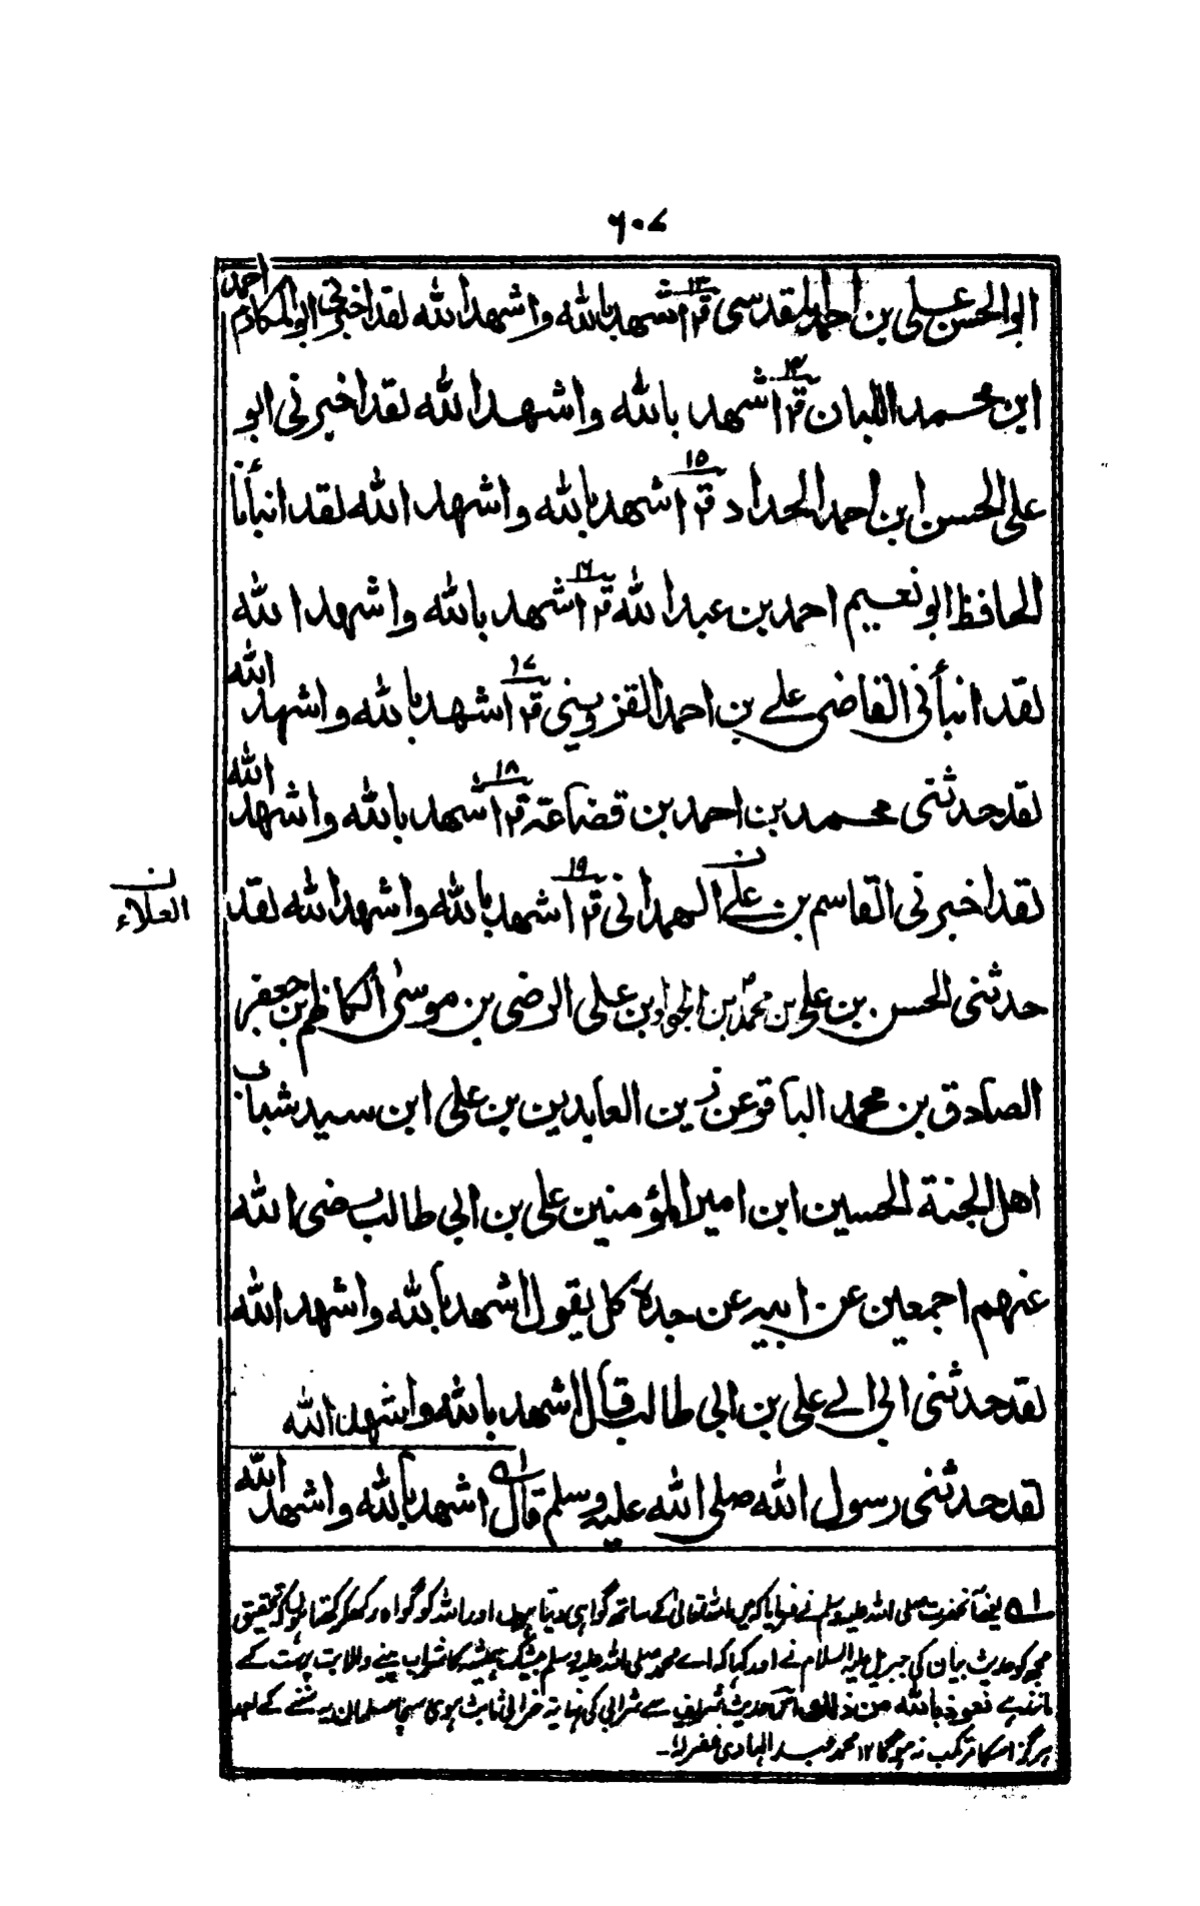 ٦٠٧
ابو الحسن علي بن احمد المقدسي قال اشهد بالله واشهد الله لقد اخبرني ابو المكارم احمد
١٣
ابن محمد اللبان قال اشهد بالله واشهد الله لقد اخبرني ابو
١٤
علي الحسن ابن احمد الحداد قال اشهد بالله واشهد الله لقد انبأنا
١٥
الحافظ ابو نعيم احمد بن عبد الله قال اشهد بالله واشهد الله
١٦
لقد انبأني القاضي علي بن احمد القزويني قال اشهد بالله واشهد الله
١٧
لقد حدثني محمد بن احمد بن قضاعة قال اشهد بالله واشهد الله
١٨
لقد اخبرني القاسم بن علي الهمداني قال اشهد بالله واشهد الله لقد
١٩
ن
ن العلاء
حدثني الحسن بن علي بن محمد بن الجواد بن علي الرضي بن موسى الكاظم بن جعفر
الصادق بن محمد الباقر عن زين العابدين بن علي ابن سيد شباب
اهل الجنة الحسين ابن امير المؤمنين علي بن ابي طالب رضي الله
عنهم اجمعين عن ابيه عن جده كل يقول اشهد بالله واشهد الله
لقد حدثني ابي علي بن ابي طالب قال اشهد بالله واشهد الله
لقد حدثني رسول الله صلى الله عليه وسلم قال اشهد بالله واشهد الله
یعنے آنحضرت صلی اللہ علیہ وسلم نے فرمایا کہ میں اللہ تعالی کے ساتھ گواہی دیتا ہوں اور اللہ کو گواہ رکھکر کہتا ہوں کہ تحقیق
مجھ کو حدیث بیان کی جبریل علیہ السلام نے اور کہا کہ اے محمد صلی اللہ علیہ وسلم بیشک ہمیشہ کا شراب پینے والا بت پرست کے
مانند ہے نعوذ بالله من ذلك اس حدیث شریف سے شرابی کی نہایۃ خرابی ثابت ہوی سچا مسلمان یہ سننے کے بعد
ہرگز اسکا مرتکب نہ ہوگا ١٢ محمد عبد الہادی غفر لہ۔